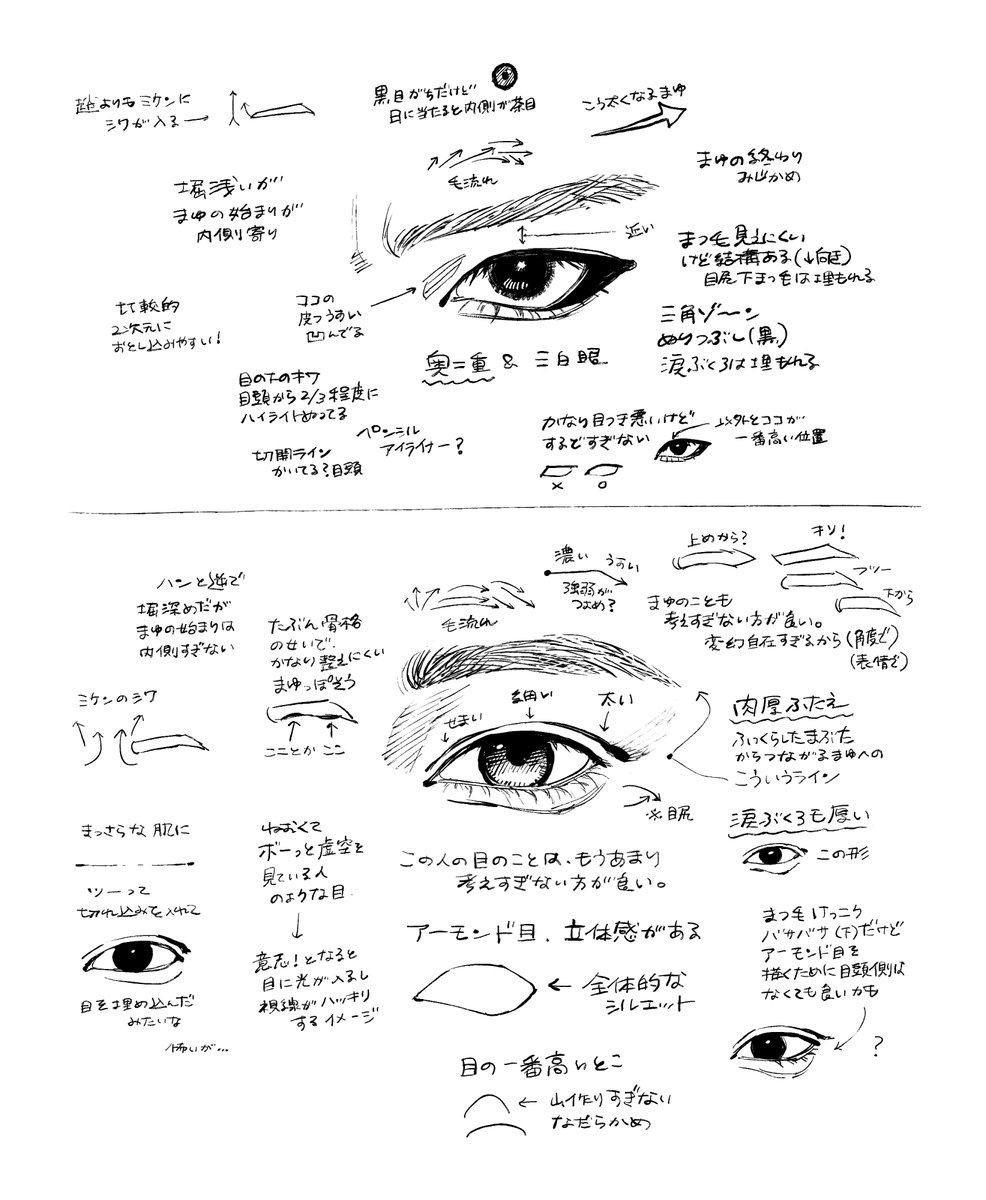 よりもミケンに
シワが入る→
黒目がちだけど
目に当たると内側が茶目
こう太くなるまゆ
毛流れ
まゆの終わり
みじかめ
堀浅いが
まゆの始まりが
内側寄り
近い
まつ毛見えにくい
けど結構ある(↓向き)
目尻下まつ毛は埋もれる
比較的
2次元に
おとし込みやすい!
ココの
皮フうすい
凹んでる
三角ゾーン
ぬりつぶし(黒)
涙ぶくろは埋もれる
奥二重 & 三白眼
目の下のキワ
目頭から2/3程度に
ハイライトぬってる
ペンシル
アイライナー?
切開ライン
かいてる?目頭
かなり目つき悪いけど
するどすぎない
× ○
以外とココが
一番高い位置
ハンと逆で
堀深めだが
まゆの始まりは
内側すぎない
たぶん骨格
のせいで
かなり整えにくい
まゆっぽそう
ここととか ここ
毛流れ
濃い うすい
強弱が
つよめ?
上めから?
キリ!
フツー
下から
まゆのことも
考えすぎない方が良い。
変幻自在すぎるから(角度で)
(表情で)
ミケンのシワ
せまい
細い
太い
肉厚ふたえ
ふっくらしたまぶた
からつながるまゆへの
こういうライン
※眠
涙ぶくろも厚い
この形
まっさらな肌に
ツーって
切れ込みを入れて
目を埋め込んだ
みたいな
怖いが…
ねむくて
ボーっと虚空を
見ている人
のような目
↓
意志!となると
目に光が入るし
視線がハッキリ
するイメージ
この人の目のことは、もうあまり
考えすぎない方が良い。
アーモンド目、立体感がある
← 全体的な
シルエット
まつ毛けっこう
バサバサ(下)だけど
アーモンド目を
描くために目頭側は
なくても良いかも
?
目の一番高いとこ
← 山作りすぎない
なだらかめ